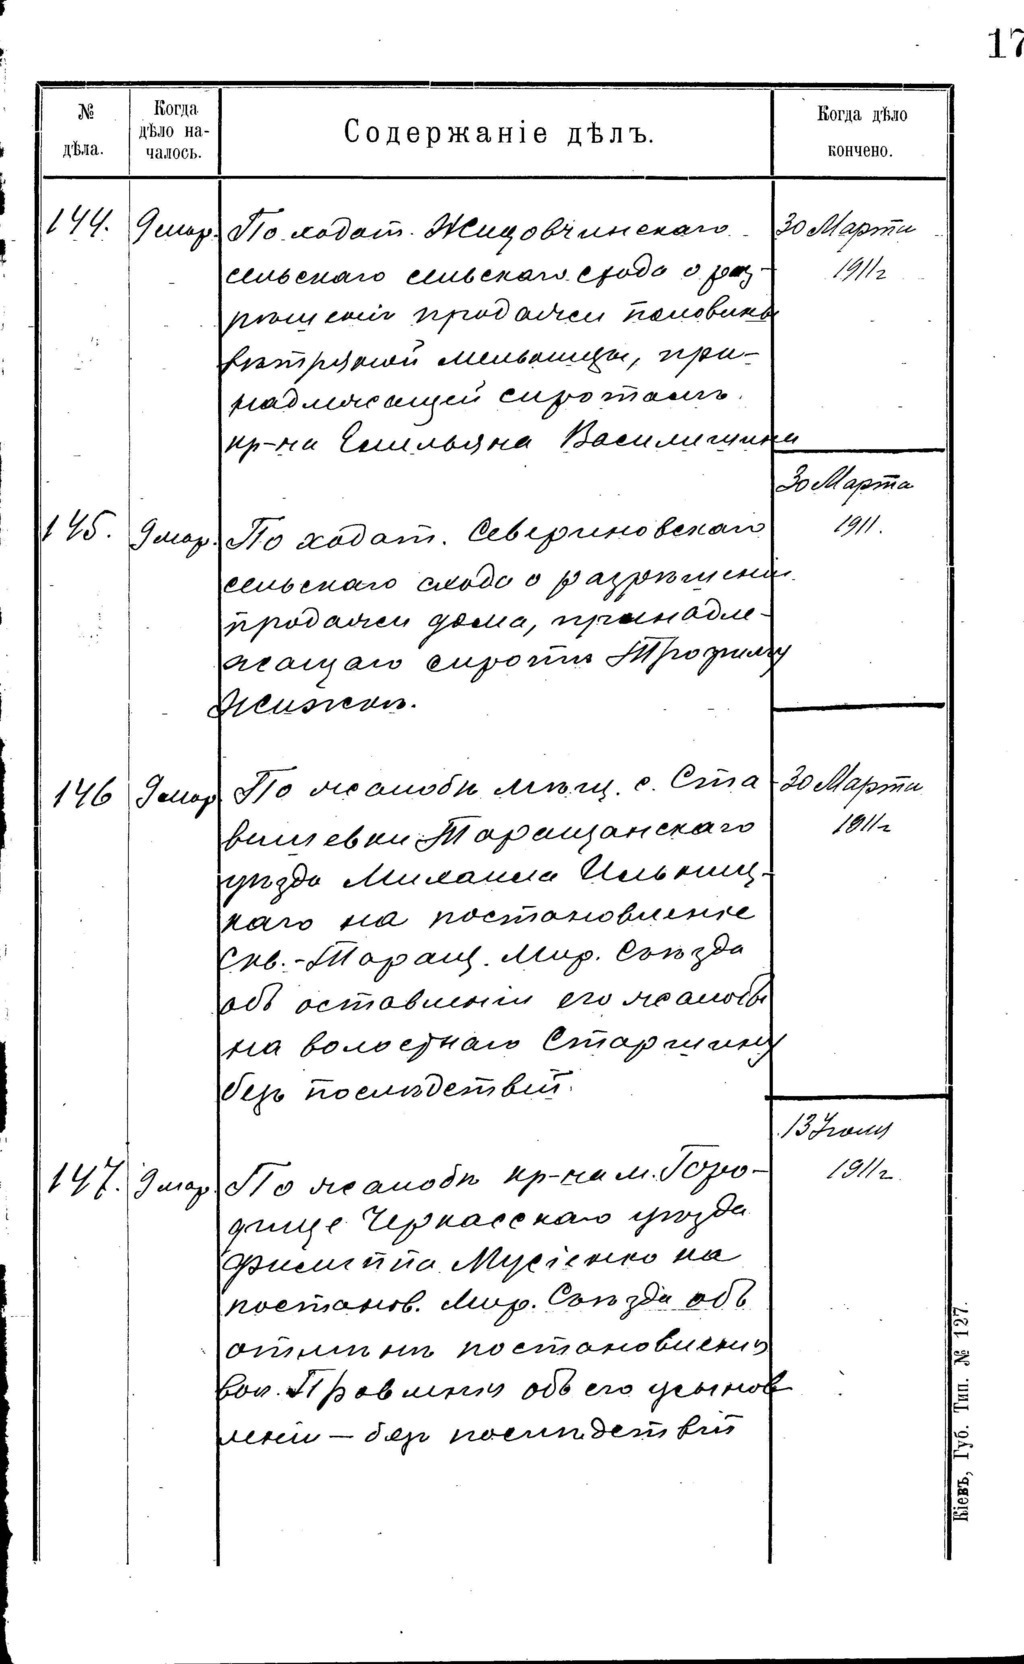 17
№ дѣла.
Когда дѣло на-чалось.
Содержаніе дѣлъ.
Когда дѣло кончено.
144. 9 мар. По ходат. Жидовчинскаго 30 Марта
сельскаго сельскаго схода о раз- 1911 г
рѣшеніи продажи половины
вѣтряной мельницы, при-
надлежащей сиротамъ
кр-на Емельяна Василишина
30 Марта
145. 9 мар. По ходат. Севериновскаго 1911.
сельскаго схода о разрѣшеніи
продажи дома, принадле-
жащаго сиротѣ Трофиму
Жижкѣ.
146 9 мар По жалобѣ мѣщ. с. Ста 30 Марта
вишевки Таращанскаго 1911 г
уѣзда Михаила Ильниц-
каго на постановленіе
Скв.-Таращ. Мир. Съѣзда
объ оставленіи его жалобы
на волостнаго Старшину
безъ послѣдствій.
13 Іюля
147. 9 мар. По жалобѣ кр-на м. Горо- 1911 г
дище Черкасскаго уѣзда
Филиппа Мусіенко на
постанов. Мир. Съѣзда объ
отмѣнѣ постановленія
вол. Правленія объ его усынов
леніи — безъ послѣдствій
Кіевъ, Губ. Тип. № 127.